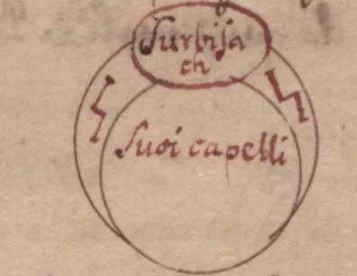 Surbisa
ch
Suoi capelli